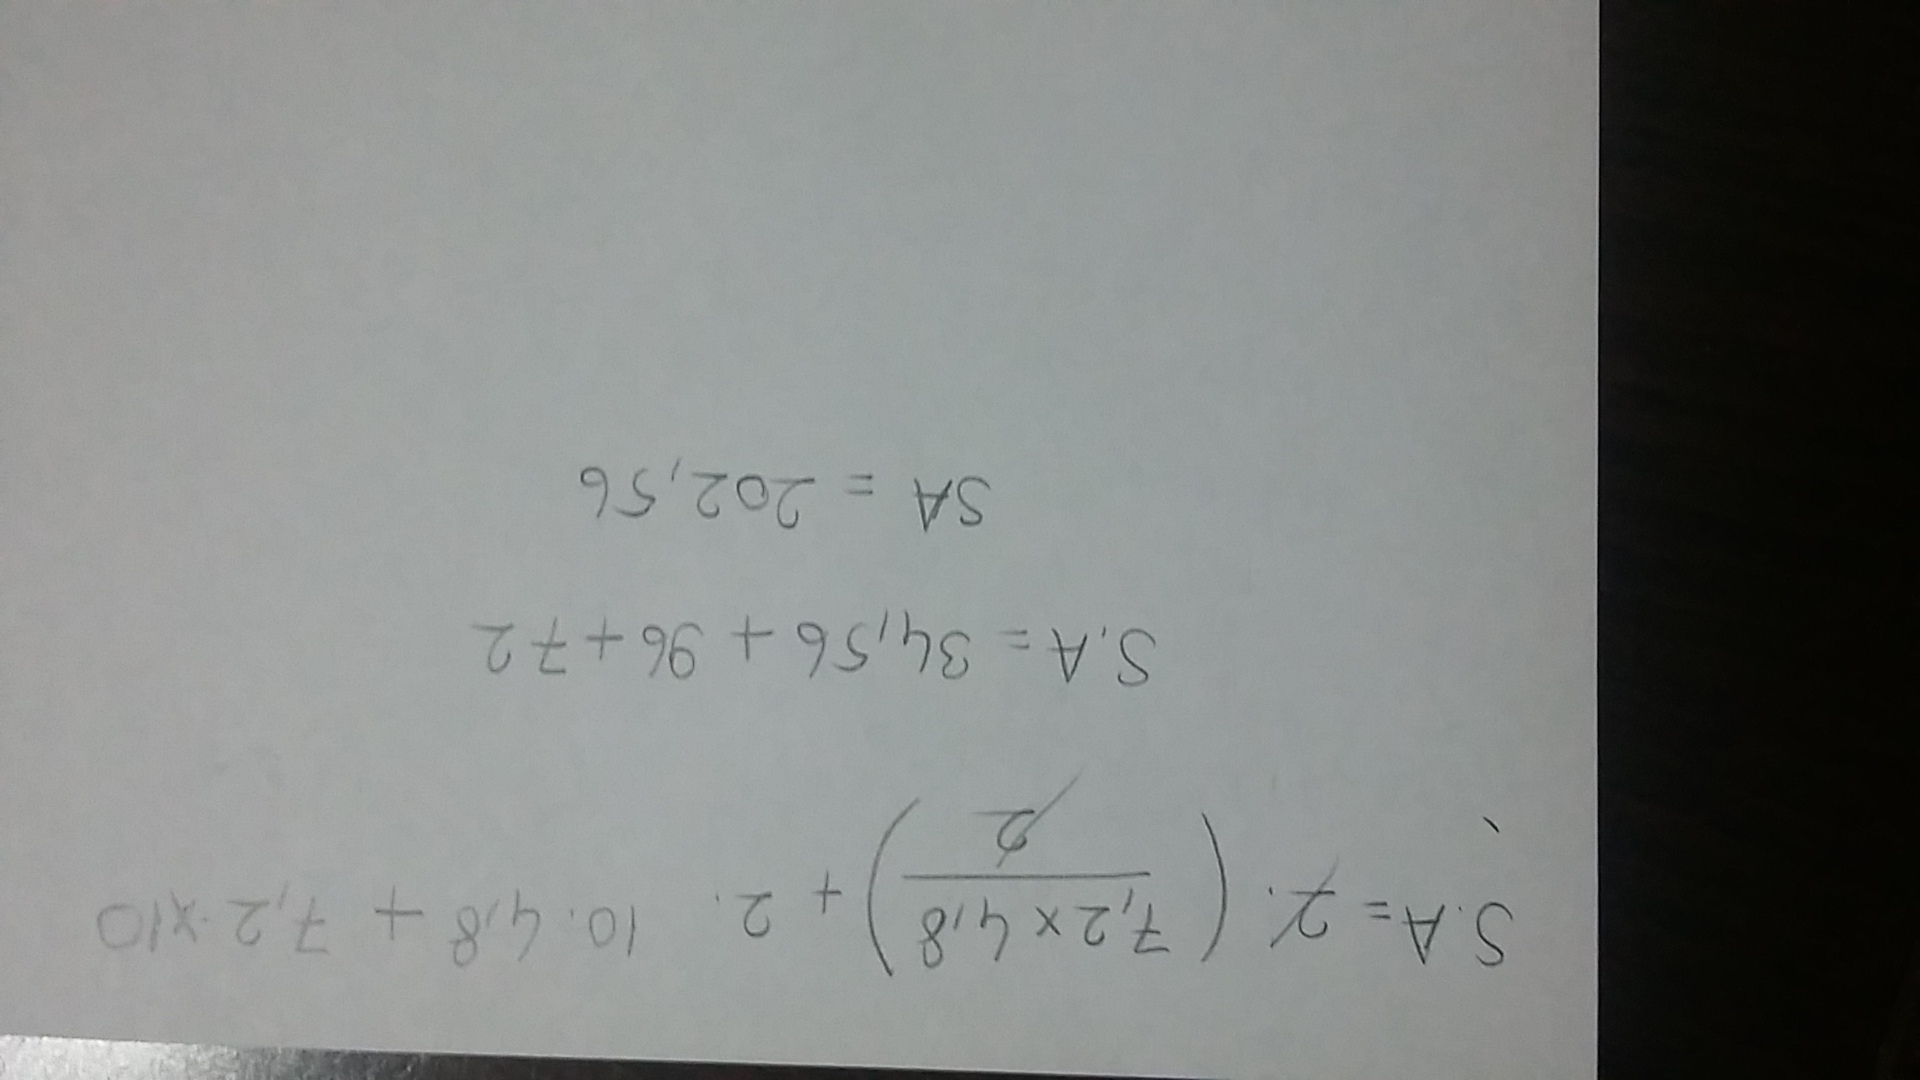 S.A = 2. (7,2 x 4,8 / 2) + 2. 10. 4,8 + 7,2 x 10
S.A = 34,56 + 96 + 72
SA = 202,56